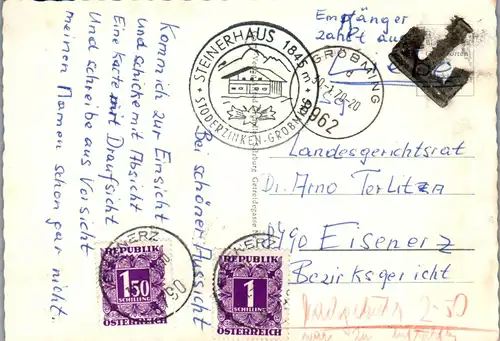 Bei schöner Aussicht
Komm ich zur Einsicht
und schicke mit Absicht
Eine Karte mit Draufsicht
Und schreibe aus Vorsicht
meinen Namen schon gar nicht.
STEINERHAUS 1845 m
STODERZINKEN-GRÖBMING
Empfänger
zahlt aus
GRÖBMING
8962
Landesgerichtsrat
Dr. Arno Terlitza
8790 Eisenerz
Bezirksgericht
Nachgebühr 2-50
EISENERZ
REPUBLIK
1.50
SCHILLING
ÖSTERREICH
EISENERZ
REPUBLIK
1
SCHILLING
ÖSTERREICH